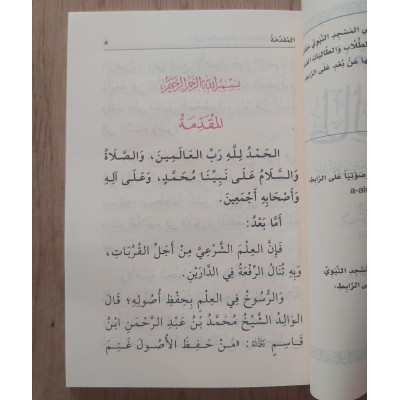 المُقَدِّمَةُ ٥
بِسْمِ اللَّهِ الرَّحْمَنِ الرَّحِيمِ
المُقَدِّمَةُ
الحَمْدُ لِلَّهِ رَبِّ العَالَمِينَ، وَالصَّلَاةُ
وَالسَّلَامُ عَلَى نَبِيِّنَا مُحَمَّدٍ، وَعَلَى آلِهِ
وَأَصْحَابِهِ أَجْمَعِينَ.
أَمَّا بَعْدُ:
فَإِنَّ العِلْمَ الشَّرْعِيَّ مِنْ أَجَلِّ القُرُبَاتِ،
وَبِهِ تُنَالُ الرِّفْعَةُ فِي الدَّارَيْنِ.
وَالرُّسُوخُ فِي العِلْمِ بِحِفْظِ أُصُولِهِ؛ قَالَ
الوَالِدُ الشَّيْخُ مُحَمَّدُ بْنُ عَبْدِ الرَّحْمَنِ ابْنُ
قَاسِمٍ رَحِمَهُ اللَّهُ: «مَنْ حَفِظَ الأُصُولَ غَنِمَ
المَسْجِدِ النَّبَوِيِّ
الطُّلَّابِ وَالطَّالِبَاتِ
عَنْ بُعْدٍ عَلَى
عَلَى الرَّابِطِ
a-alq
النَّبَوِيِّ
الرَّابِطِ: